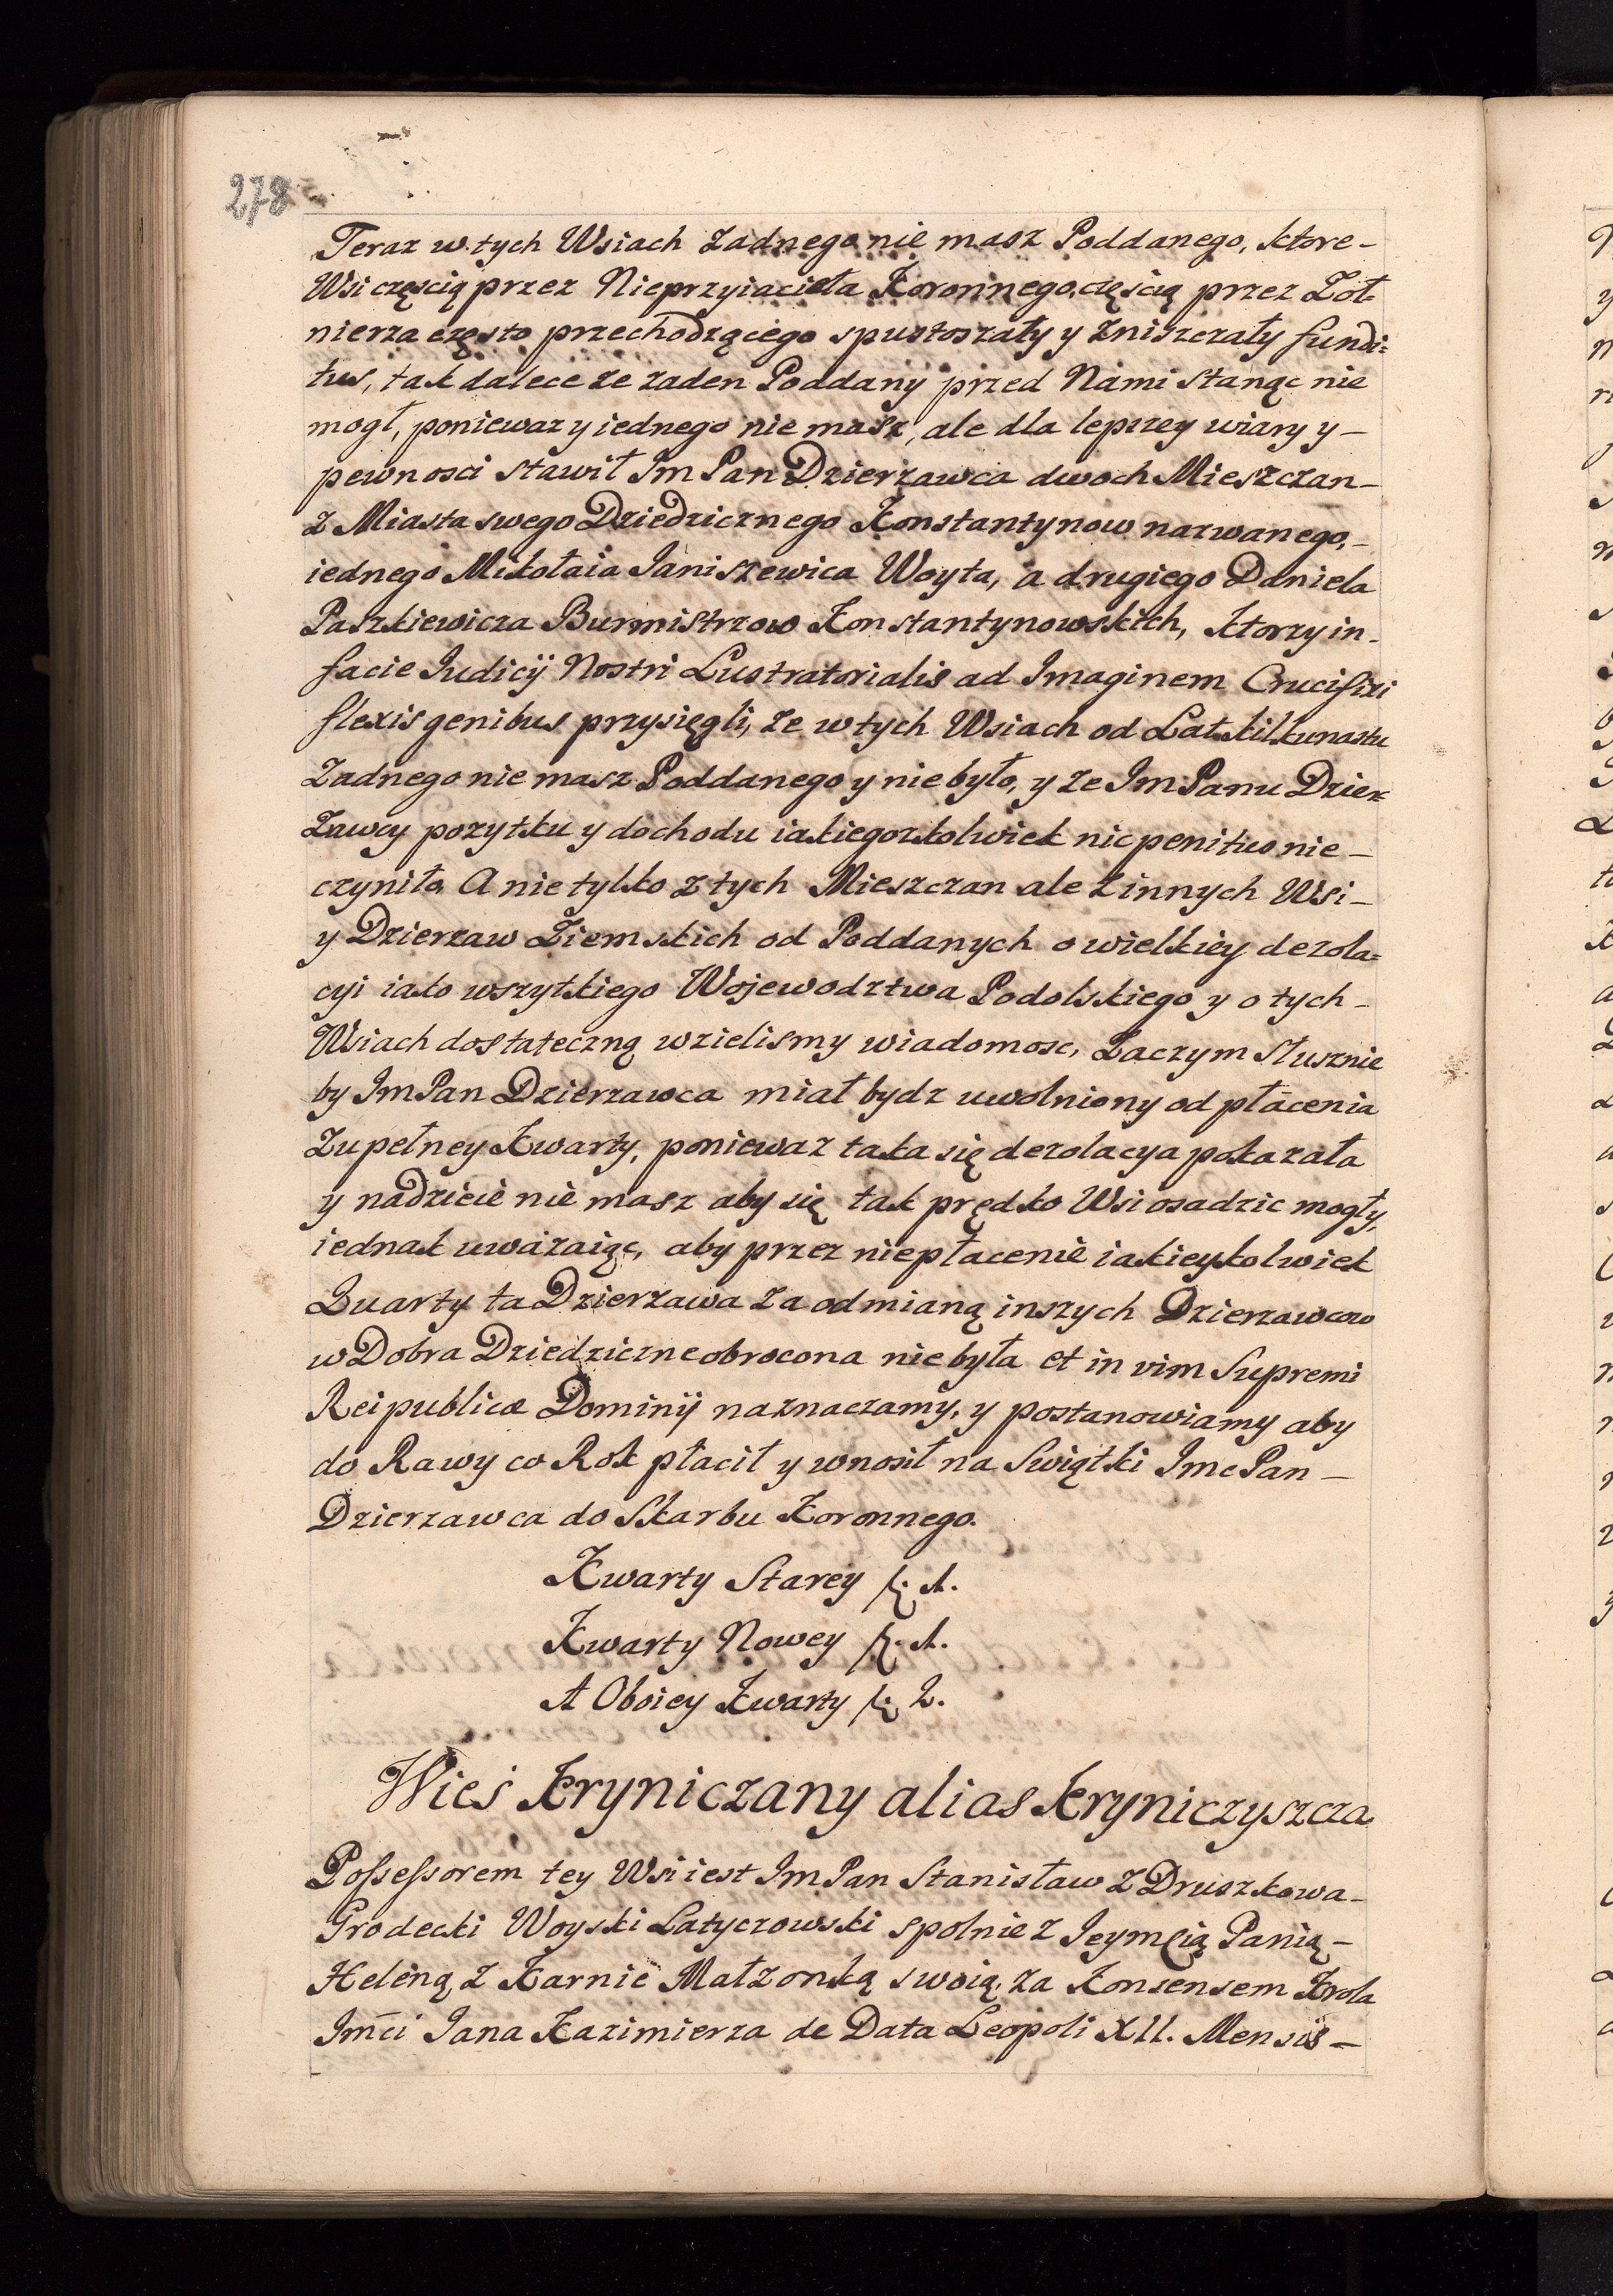 278
Teraz w tych Wsiach zadnego nie masz Poddanego, ktore-
Wsi częscią przez Nieprzyiaciela Koronnego, częscią przez Zoł=
nierza często przechodzącego spustoszały y zniszczały fundi=
tus, tak dalece ze zaden Poddany przed Nami Stanąc nie
mogł, poniewaz y iednego nie masz, ale dla lepszey wiary y-
pewnosci stawił Im Pan Dzierzawca dwoch Mieszczan-
z Miasta swego Dziedzicznego Konstantynow nazwanego,-
iednego Mikołaia Ianiszewica Woyta, a drugiego Daniela
Paszkiewicza Burmistrzow Konstantynowskich, ktorzy in-
facie Iudicij Nostri Lustratorialis ad Imaginem Crucifixi
flexis genibus przysięgli, ze w tych Wsiach od Lat kilkunastu
Zadnego nie masz Poddanego y nie było, y ze Im Panu Dzier=
zawcy pozytku y dochodu iakiegozkolwiek nic penitus nie-
czyniło. A nie tylko z tych Mieszczan ale z innych Wsi-
y Dzierzaw Ziemskich od Poddanych o wielkiey dezola=
cyi iako wszytkiego Wojewodztwa Podolskiego y o tych-
Wsiach dostateczną wzielismy wiadomosc, Zaczym Słusznie
by Im Pan Dzierzawca miał bydz uwolniony od płacenia
Zupełney Kwarty, poniewaz taka się dezolacya pokazała
y nadzieie nie masz aby się tak prędko Wsi osadzic mogły,
iednak uwazaiąc, aby przez niepłacenie iakieykolwiek
Quarty ta Dzierzawa za odmianą inszych Dzierzawcow
w Dobra Dziedziczne obrocona nie była et in vim Supremi
Reipublicæ Dominij naznaczamy, y postanowiamy aby
do Rawy co Rok płacił y wnosił na Swiątki Imc Pan-
Dzierzawca do Skarbu Koronnego.
Kwarty Starey f. 1.
Kwarty Nowey f. 1.
A Oboiey Kwarty f. 2.
Wieś Kryniczany alias Kryniczyszcza
Possessorem tey Wsi iest Im Pan Stanisław z Druszkowa-
Grodecki Woyski Latyczowski spolnie z Ieymcią Panią-
Heleną z Karnic Małzonką swoią, za Konsensem Krola
Imci Iana Kazimierza de Data Leopoli XII. Mensis-